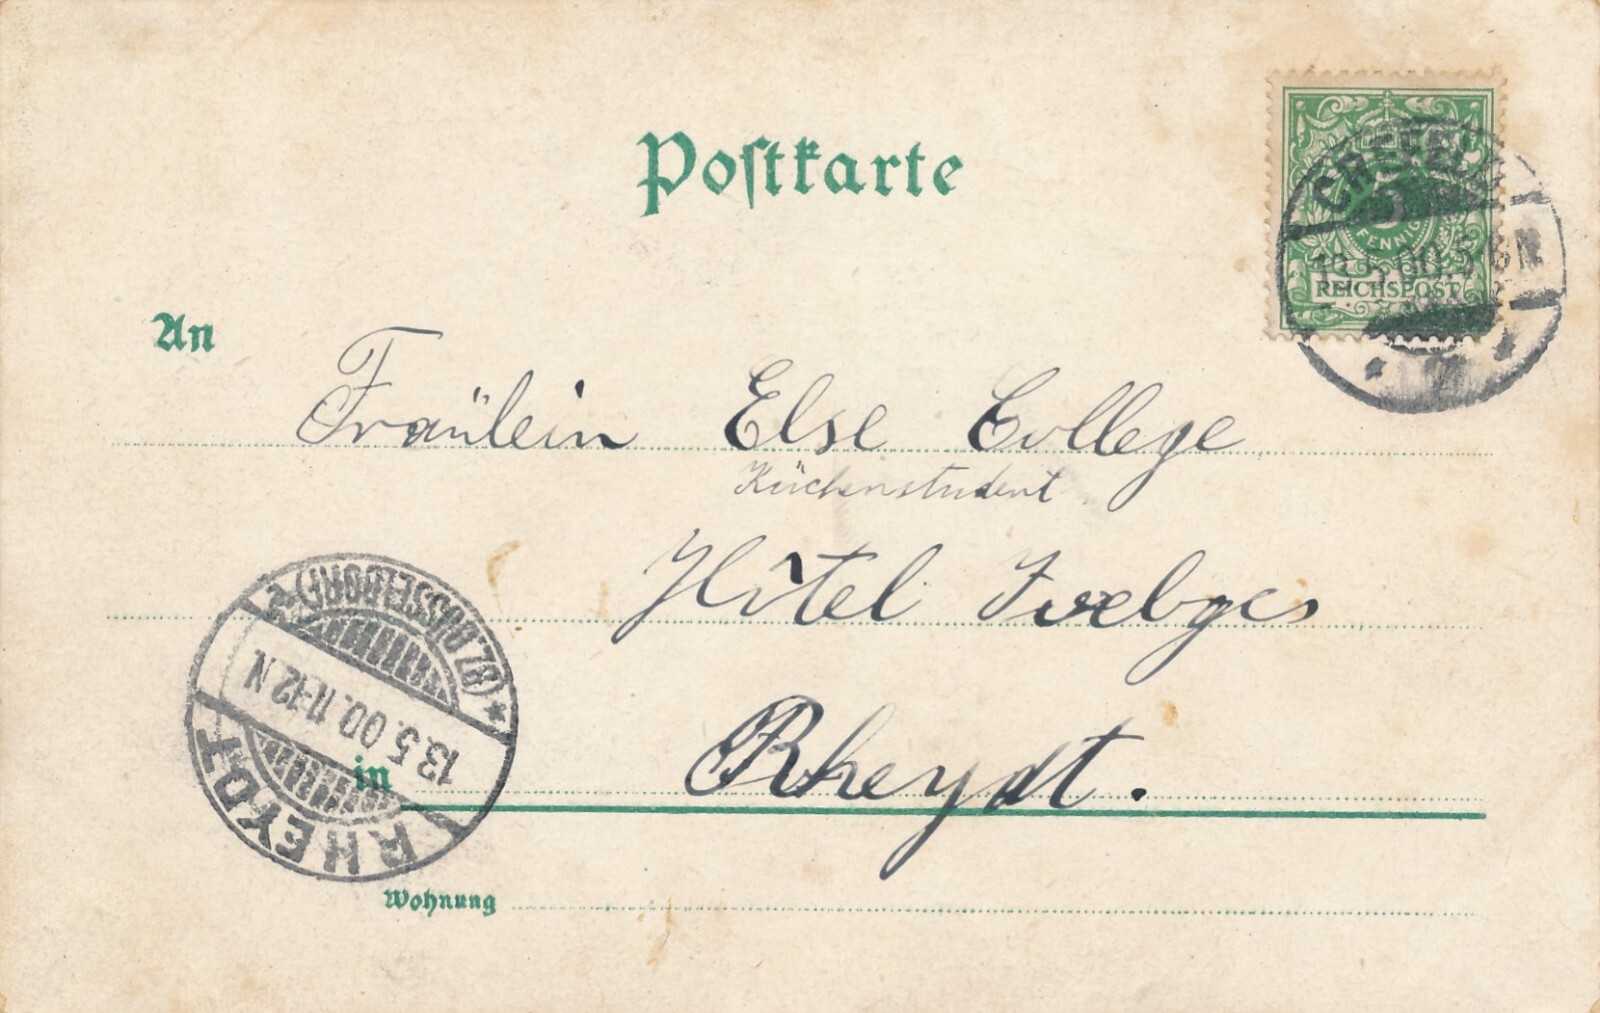 Postkarte
CREFELD
5
PFENNIG
REICHSPOST
13.5.00.5-6N
An
Fräulein Else College
Küchenstudent
Hôtel
in Rheydt.
RHEYDT
13.5.00.11-12N
(BZ.DÜSSELDORF)
Wohnung